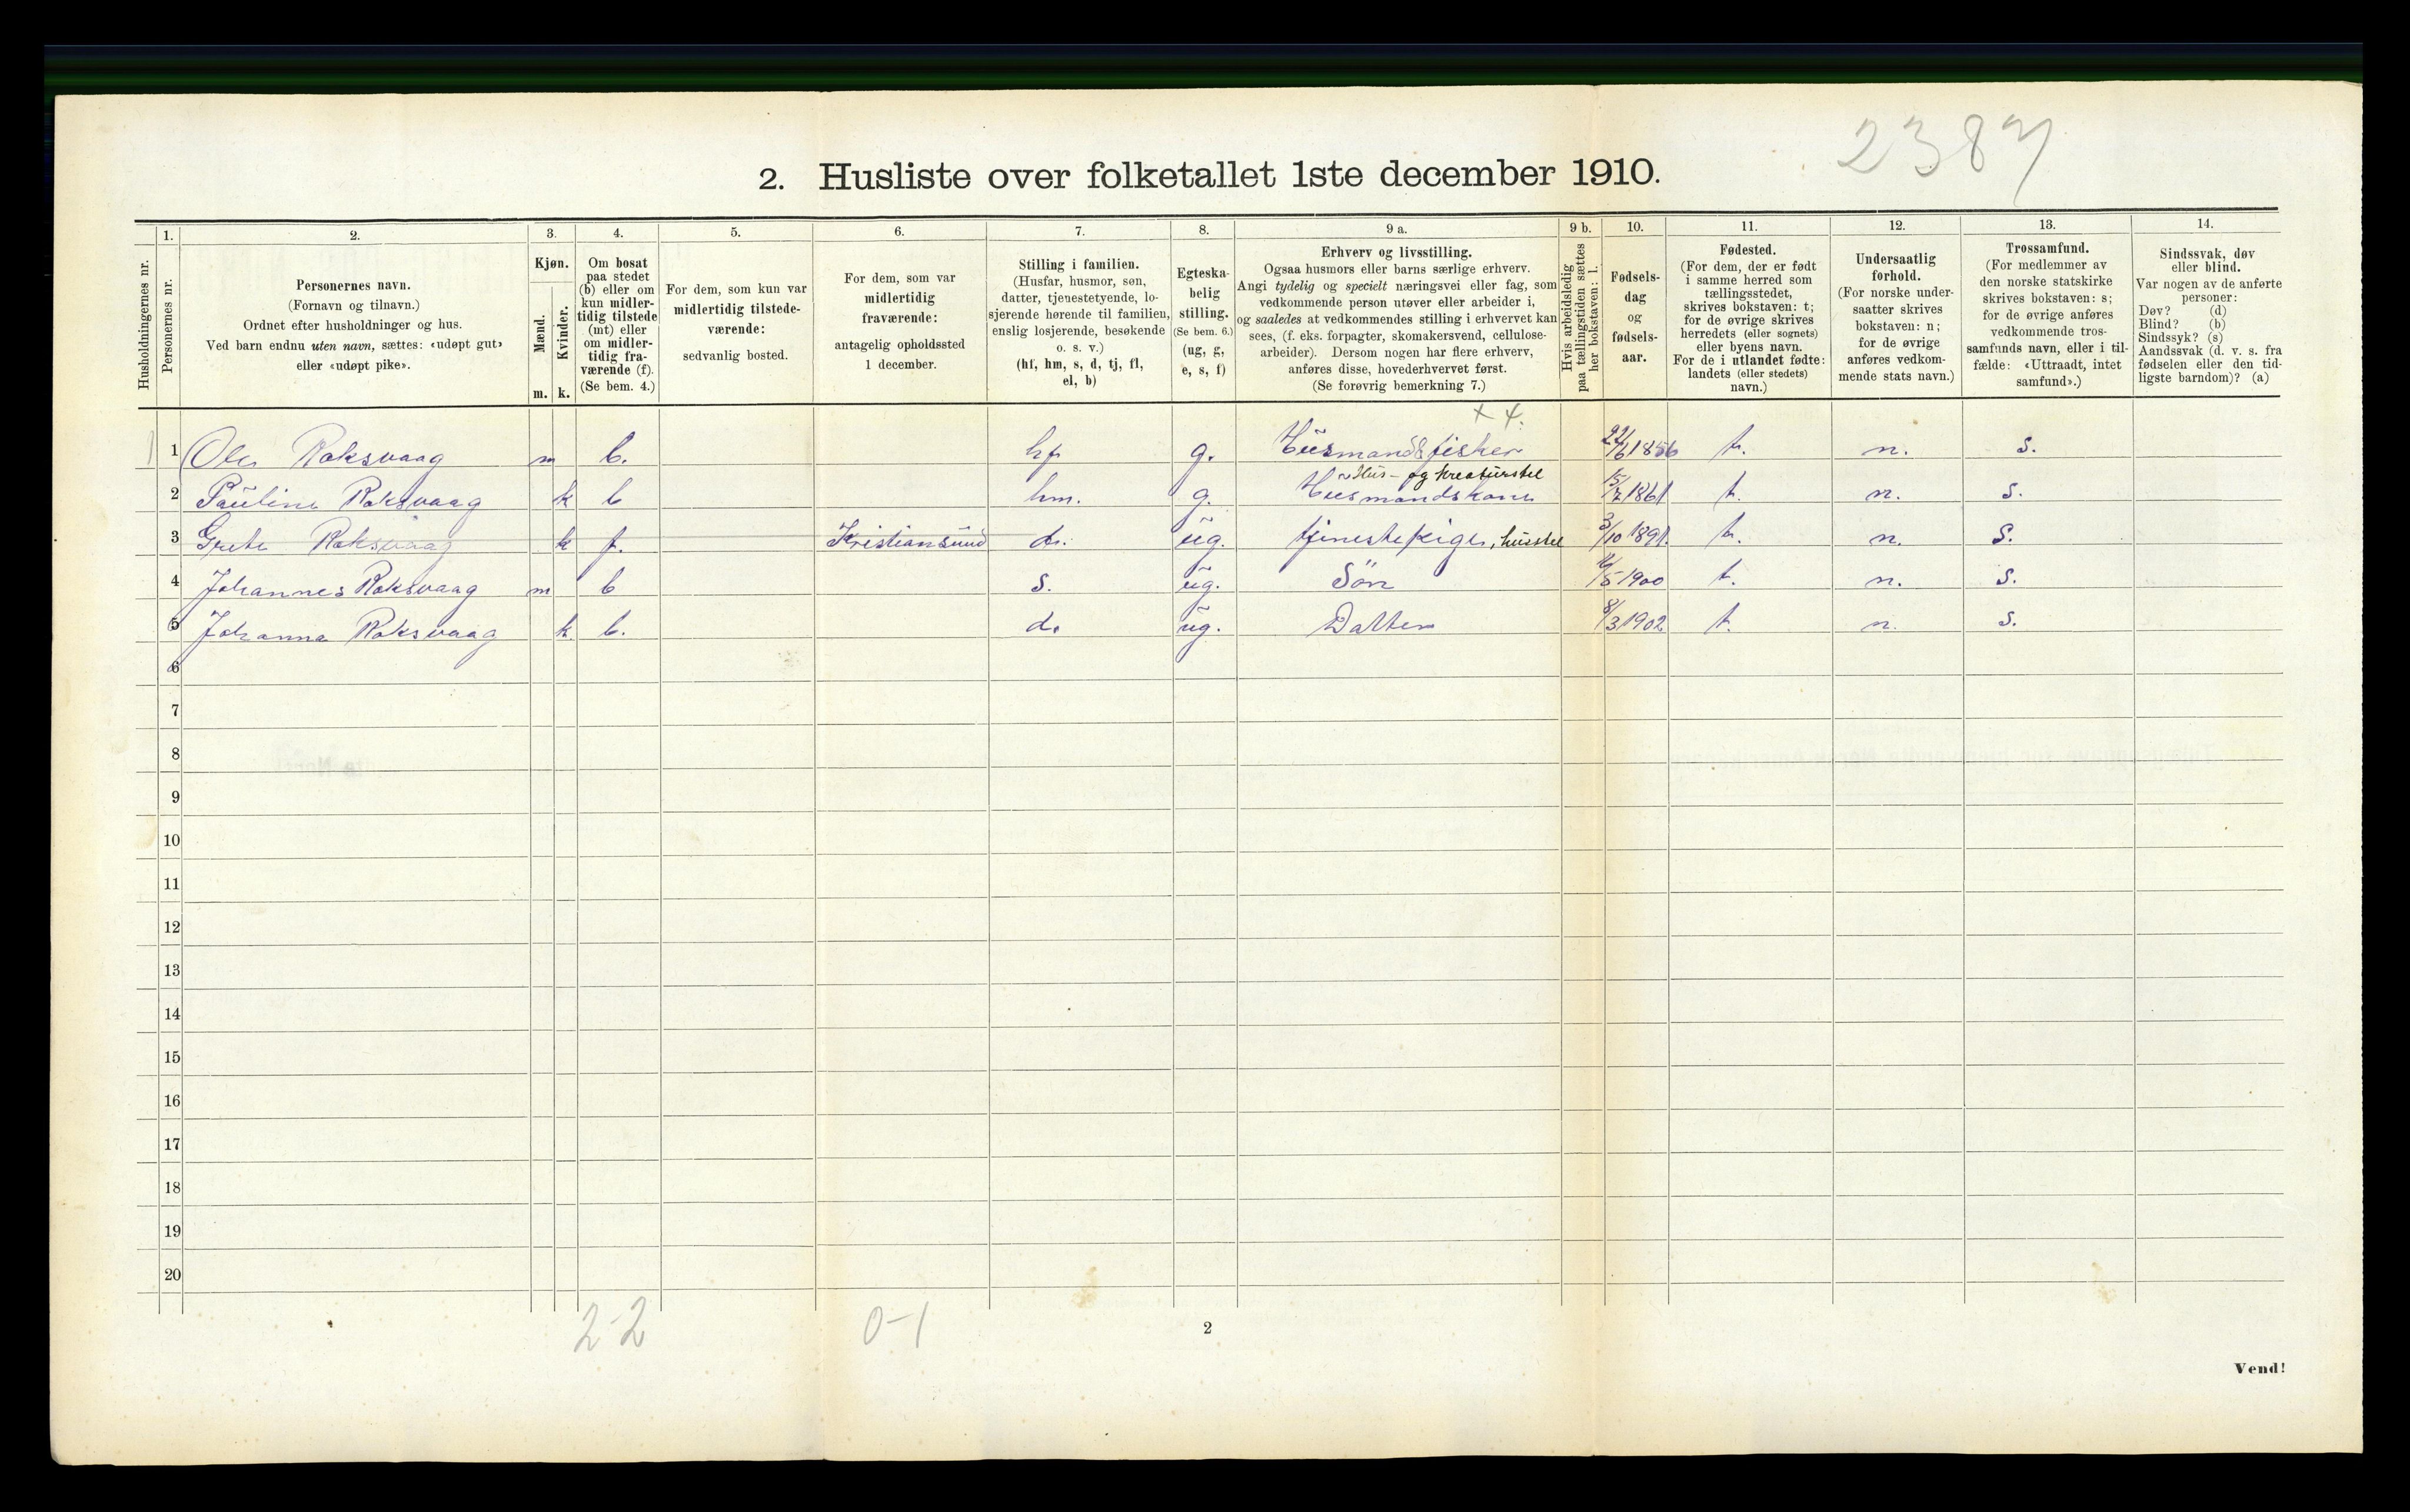 2387
2. Husliste over folketallet 1ste december 1910.
Husholdningernes nr.
1.
Personernes nr.
2.
Personernes navn.
(Fornavn og tilnavn.)
Ordnet efter husholdninger og hus.
Ved barn endnu uten navn, sættes: «udøpt gut»
eller «udøpt pike».
3.
Kjøn.
Mænd.
Kvinder.
m. k.
4.
Om bosat
paa stedet
(b) eller om
kun midler-
tidig tilstede
(mt) eller
om midler-
tidig fra-
værende (f).
(Se bem. 4.)
5.
For dem, som kun var
midlertidig tilstede-
værende:
sedvanlig bosted.
6.
For dem, som var
midlertidig
fraværende:
antagelig opholdssted
1 december.
7.
Stilling i familien.
(Husfar, husmor, søn,
datter, tjenestetyende, lo-
sjerende hørende til familien,
enslig losjerende, besøkende
o. s. v.)
(hf, hm, s, d, tj, fl,
el, b)
8.
Egteska-
belig
stilling.
(Se bem. 6.)
(ug, g,
e, s, f)
9 a.
Erhverv og livsstilling.
Ogsaa husmors eller barns særlige erhverv.
Angi tydelig og specielt næringsvei eller fag, som
vedkommende person utøver eller arbeider i,
og saaledes at vedkommendes stilling i erhvervet kan
sees, (f. eks. forpagter, skomakersvend, cellulose-
arbeider). Dersom nogen har flere erhverv,
anføres disse, hovederhvervet først.
(Se forøvrig bemerkning 7.)
9 b.
Hvis arbeidsledig
paa tællingstiden sættes
her bokstaven: l.
10.
Fødsels-
dag
og
fødsels-
aar.
11.
Fødested.
(For dem, der er født
i samme herred som
tællingsstedet,
skrives bokstaven: t;
for de øvrige skrives
herredets (eller sognets)
eller byens navn.
For de i utlandet fødte:
landets (eller stedets)
navn.)
12.
Undersaatlig
forhold.
(For norske under-
saatter skrives
bokstaven: n;
for de øvrige
anføres vedkom-
mende stats navn.)
13.
Trossamfund.
(For medlemmer av
den norske statskirke
skrives bokstaven: s;
for de øvrige anføres
vedkommende tros-
samfunds navn, eller i til-
fælde: «Uttraadt, intet
samfund».)
14.
Sindssvak, døv
eller blind.
Var nogen av de anførte
personer:
Døv? (d)
Blind? (b)
Sindssyk? (s)
Aandssvak (d. v. s. fra
fødselen eller den tid-
ligste barndom)? (a)
x 4.
1 1 Ole Roksvaag m b. hf g. Husmand & fisker 22/6 1856 t. n. s.
Hus- og kreaturstel
2 Pauline Roksvaag k b hm. g. Husmandskone 15/7 1861 t. n. s.
3 Grete Roksvaag k f. Kristiansund d. ug. tjenestepige, husstel 3/10 1891. t. n. s.
4 Johannes Roksvaag m b s. ug. Sön /5 1900 t. n. s.
5 Johanna Roksvaag k b. d. ug. Datter 8/3 1902 t. n. s.
6
7
8
9
10
11
12
13
14
15
16
17
18
19
20
2-2 0-1
2
Vend!